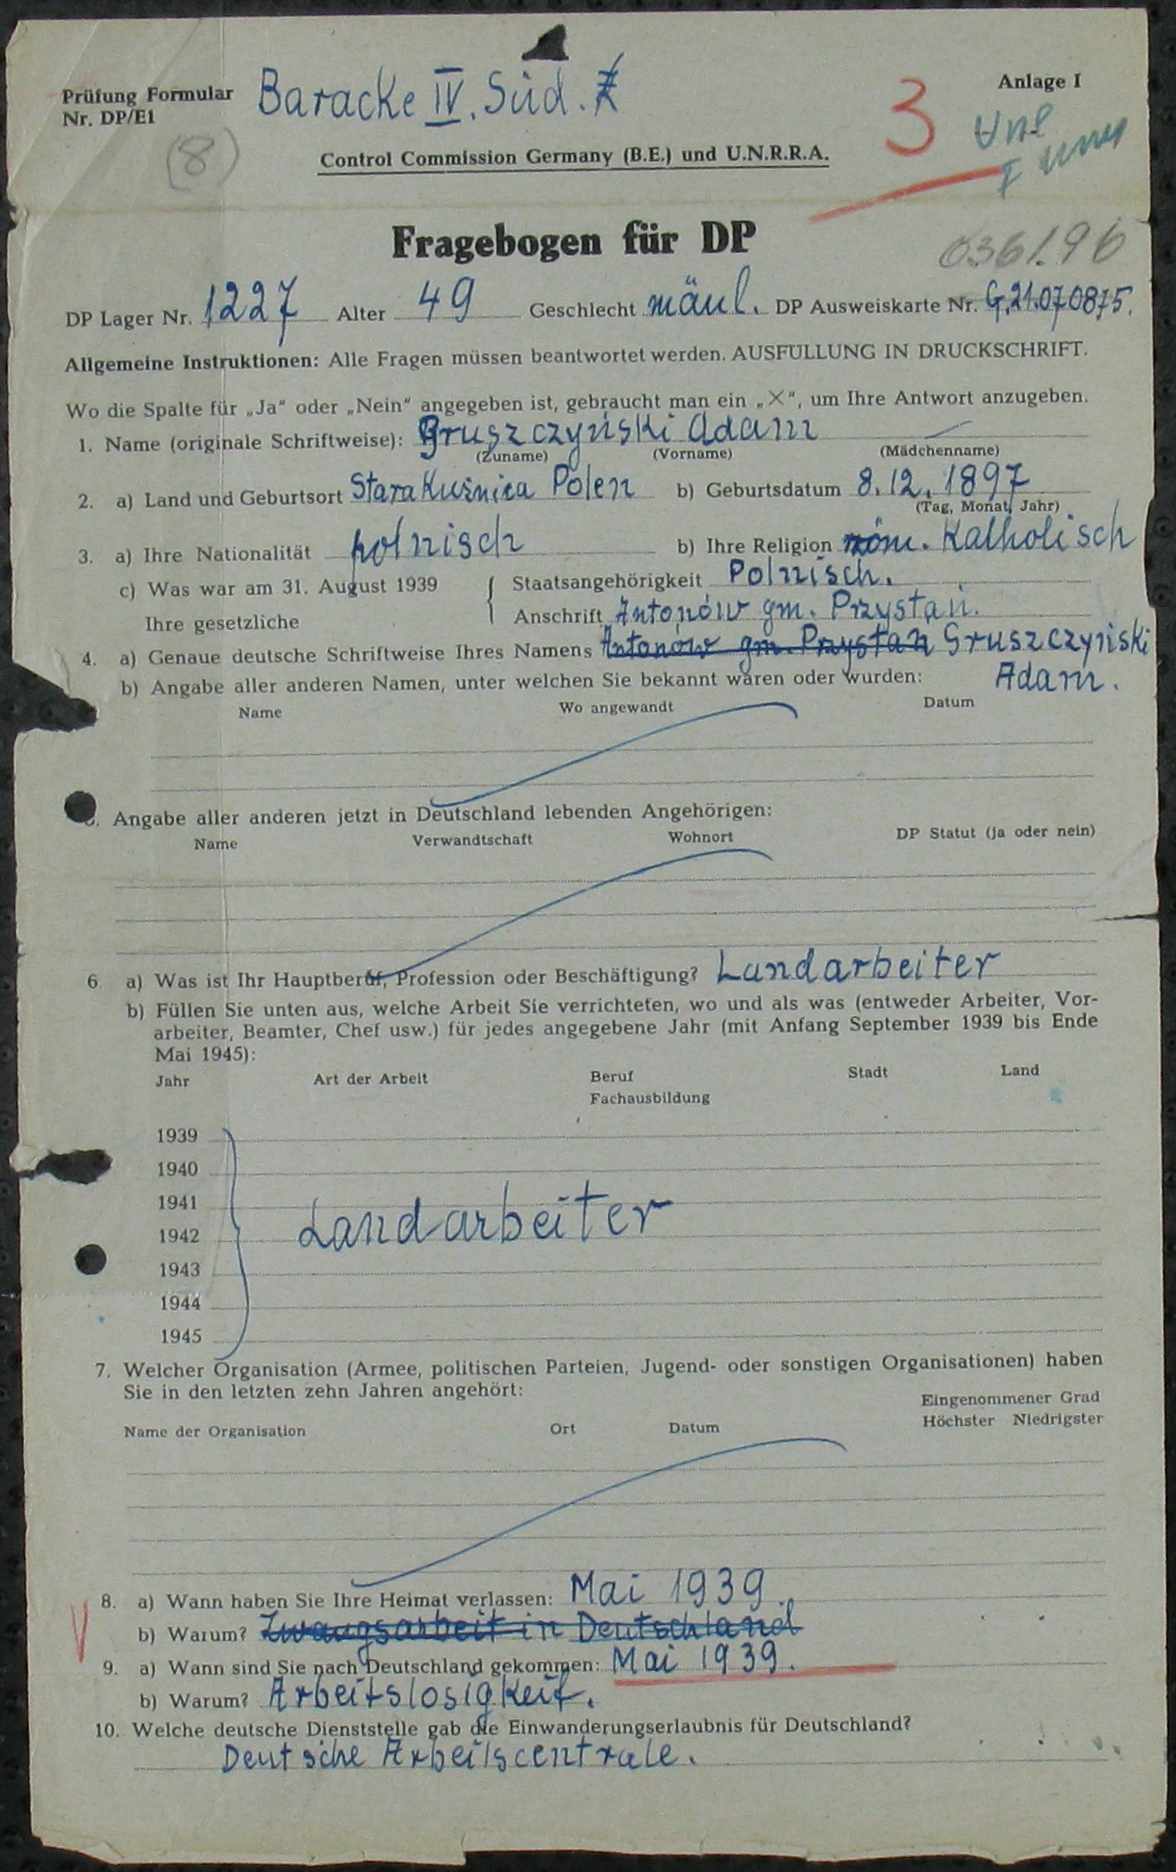 Prüfung Formular
Nr. DP/E1
Baracke IV. Süd.
Anlage I
3
(8)
Control Commission Germany (B.E.) und U.N.R.R.A.
Fragebogen für DP
036196
DP Lager Nr. 1227 Alter 49 Geschlecht mänl. DP Ausweiskarte Nr. G.21.070875.
Allgemeine Instruktionen: Alle Fragen müssen beantwortet werden. AUSFÜLLUNG IN DRUCKSCHRIFT.
Wo die Spalte für „Ja“ oder „Nein“ angegeben ist, gebraucht man ein „×“, um Ihre Antwort anzugeben.
1. Name (originale Schriftweise): Gruszczyński Adam
(Zuname) (Vorname) (Mädchenname)
2. a) Land und Geburtsort Stara Kuźnica Polen b) Geburtsdatum 8.12.1897
(Tag, Monat, Jahr)
3. a) Ihre Nationalität polnisch b) Ihre Religion röm. Katholisch
c) Was war am 31. August 1939 { Staatsangehörigkeit Polnisch.
Ihre gesetzliche Anschrift Antonów gm. Przystań.
4. a) Genaue deutsche Schriftweise Ihres Namens Antonów gm. Przystań Gruszczyński
b) Angabe aller anderen Namen, unter welchen Sie bekannt waren oder wurden: Adam.
Name Wo angewandt Datum
Angabe aller anderen jetzt in Deutschland lebenden Angehörigen:
Name Verwandtschaft Wohnort DP Statut (ja oder nein)
6. a) Was ist Ihr Hauptberuf, Profession oder Beschäftigung? Landarbeiter
b) Füllen Sie unten aus, welche Arbeit Sie verrichteten, wo und als was (entweder Arbeiter, Vor-
arbeiter, Beamter, Chef usw.) für jedes angegebene Jahr (mit Anfang September 1939 bis Ende
Mai 1945):
Jahr Art der Arbeit Beruf Stadt Land
Fachausbildung
1939
1940
1941
Landarbeiter
1942
1943
1944
1945
7. Welcher Organisation (Armee, politischen Parteien, Jugend- oder sonstigen Organisationen) haben
Sie in den letzten zehn Jahren angehört:
Eingenommener Grad
Name der Organisation Ort Datum Höchster Niedrigster
8. a) Wann haben Sie Ihre Heimat verlassen: Mai 1939.
b) Warum? Zwangsarbeit in Deutschland
9. a) Wann sind Sie nach Deutschland gekommen: Mai 1939.
b) Warum? Arbeitslosigkeit.
10. Welche deutsche Dienststelle gab die Einwanderungserlaubnis für Deutschland?
Deutsche Arbeitscentrale.